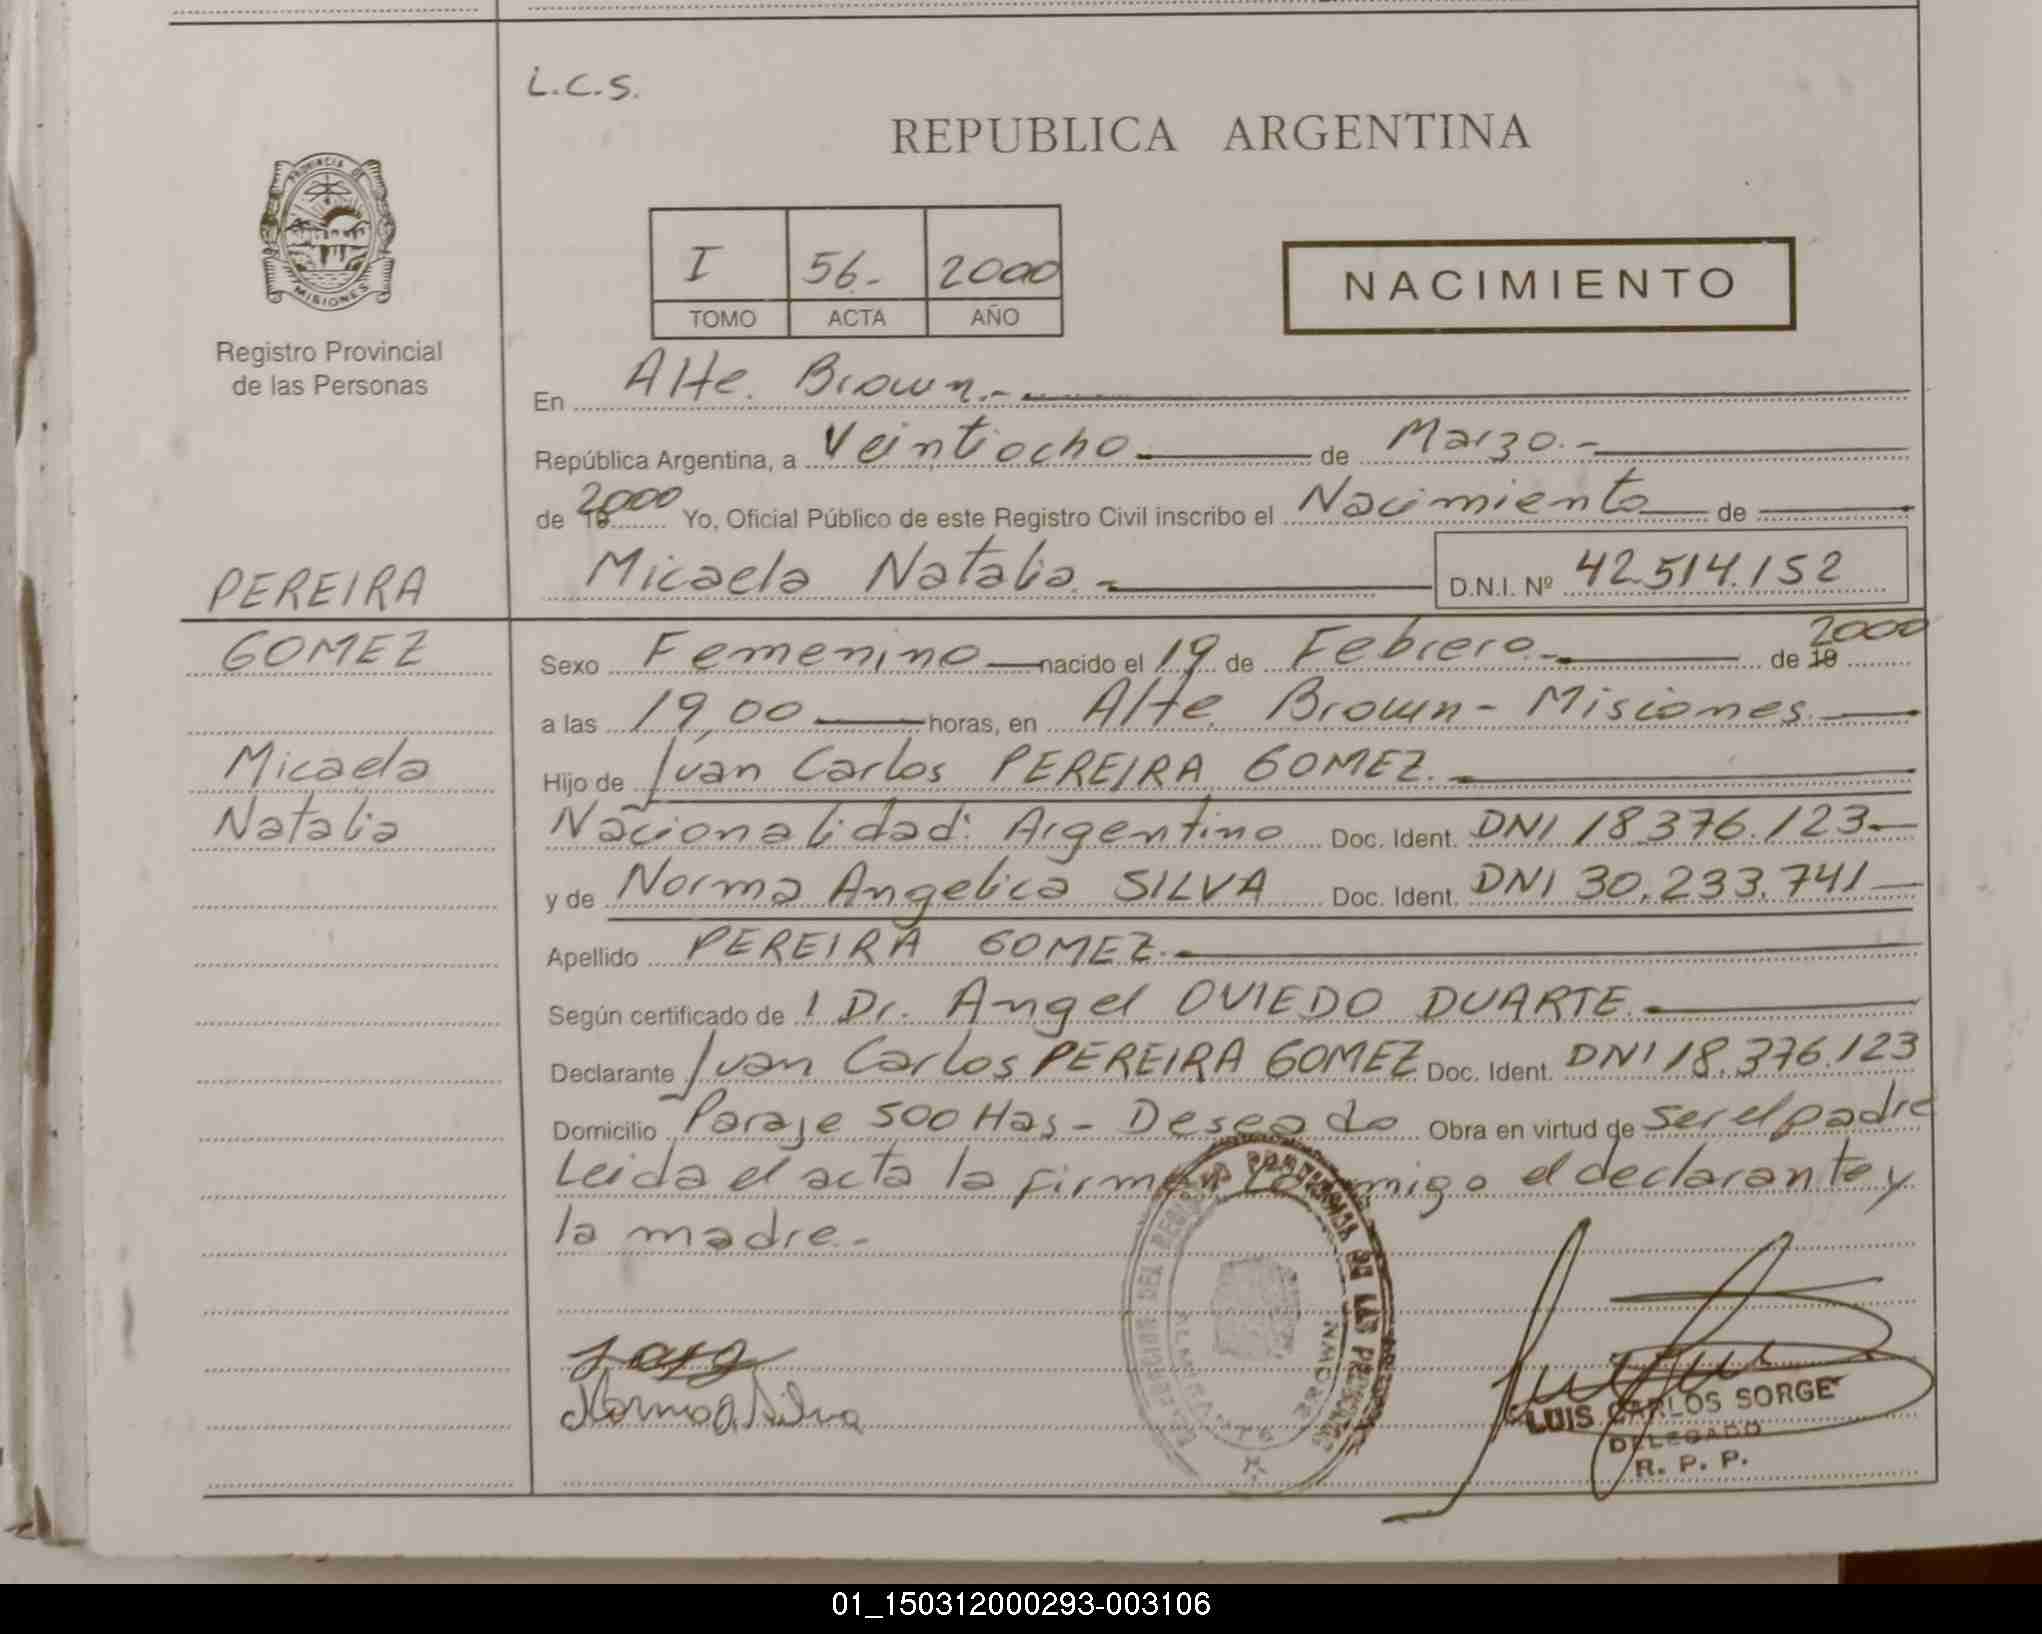 L.C.S.
REPUBLICA ARGENTINA
PROVINCIA DE
MISIONES
Registro Provincial
de las Personas
I 56.- 2000
TOMO ACTA AÑO
NACIMIENTO
En Alte. Brown.-
República Argentina, a Veintiocho de Marzo.-
de 19 2000 Yo, Oficial Público de este Registro Civil inscribo el Nacimiento de
Micaela Natalia.- D.N.I. Nº 42.514.152
PEREIRA
GOMEZ
Micaela
Natalia
Sexo Femenino nacido el 19 de Febrero.- de 19 2000
a las 19,00 horas, en Alte. Brown - Misiones.
Hijo de Juan Carlos PEREIRA GOMEZ.-
Nacionalidad: Argentino Doc. Ident. DNI 18.376.123.-
y de Norma Angelica SILVA Doc. Ident. DNI 30.233.741
Apellido PEREIRA GOMEZ.-
Según certificado de l Dr. Angel OVIEDO DUARTE.-
Declarante Juan Carlos PEREIRA GOMEZ Doc. Ident. DNI 18.376.123
Domicilio Paraje 500 Has - Deseado Obra en virtud de ser el padre
Leida el acta la firman conmigo el declarante y
la madre.-
Norma A. Silva
LUIS CARLOS SORGE
DELEGADO
R. P. P.
01_150312000293-003106